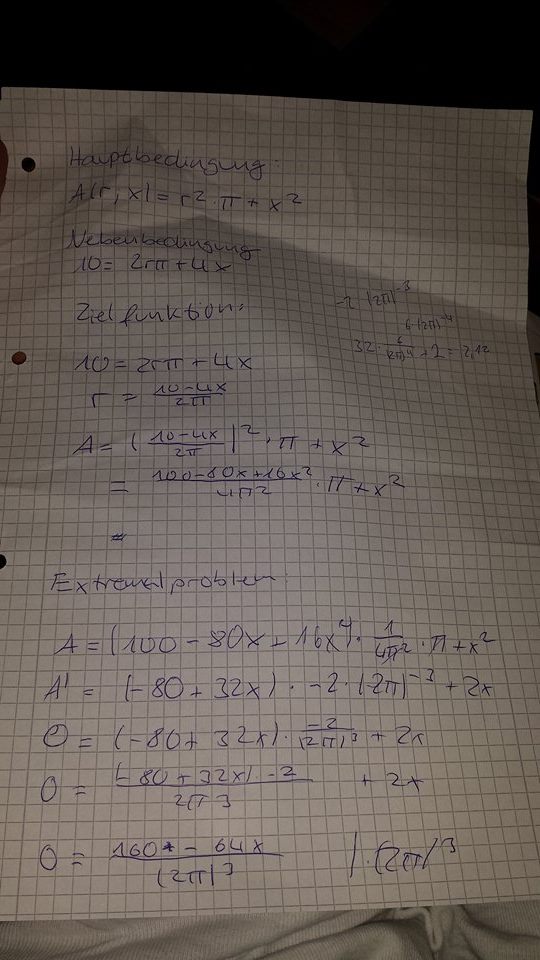 Hauptbedingung:
A(r, x) = r² · π + x²
Nebenbedingung
10 = 2rπ + 4x
Zielfunktion:
10 = 2rπ + 4x
r = (10-4x)/(2π)
A = ((10-4x)/(2π))² · π + x²
= (100-80x+16x²)/(4π²) · π + x²
=
-2 (2π)^-3
6·(2π)^-4
32 · 6/(2π)^4 + 2 = 2,12
Extremalproblem:
A = (100 - 80x + 16x²) · 1/(4π²) · π + x²
A' = (-80 + 32x) · -2 · (2π)^-3 + 2x
0 = (-80 + 32x) · -2/(2π)³ + 2x
0 = ((-80 + 32x) · -2)/(2π³) + 2x
0 = (160 - 64x)/(2π)³ | · (2π)³